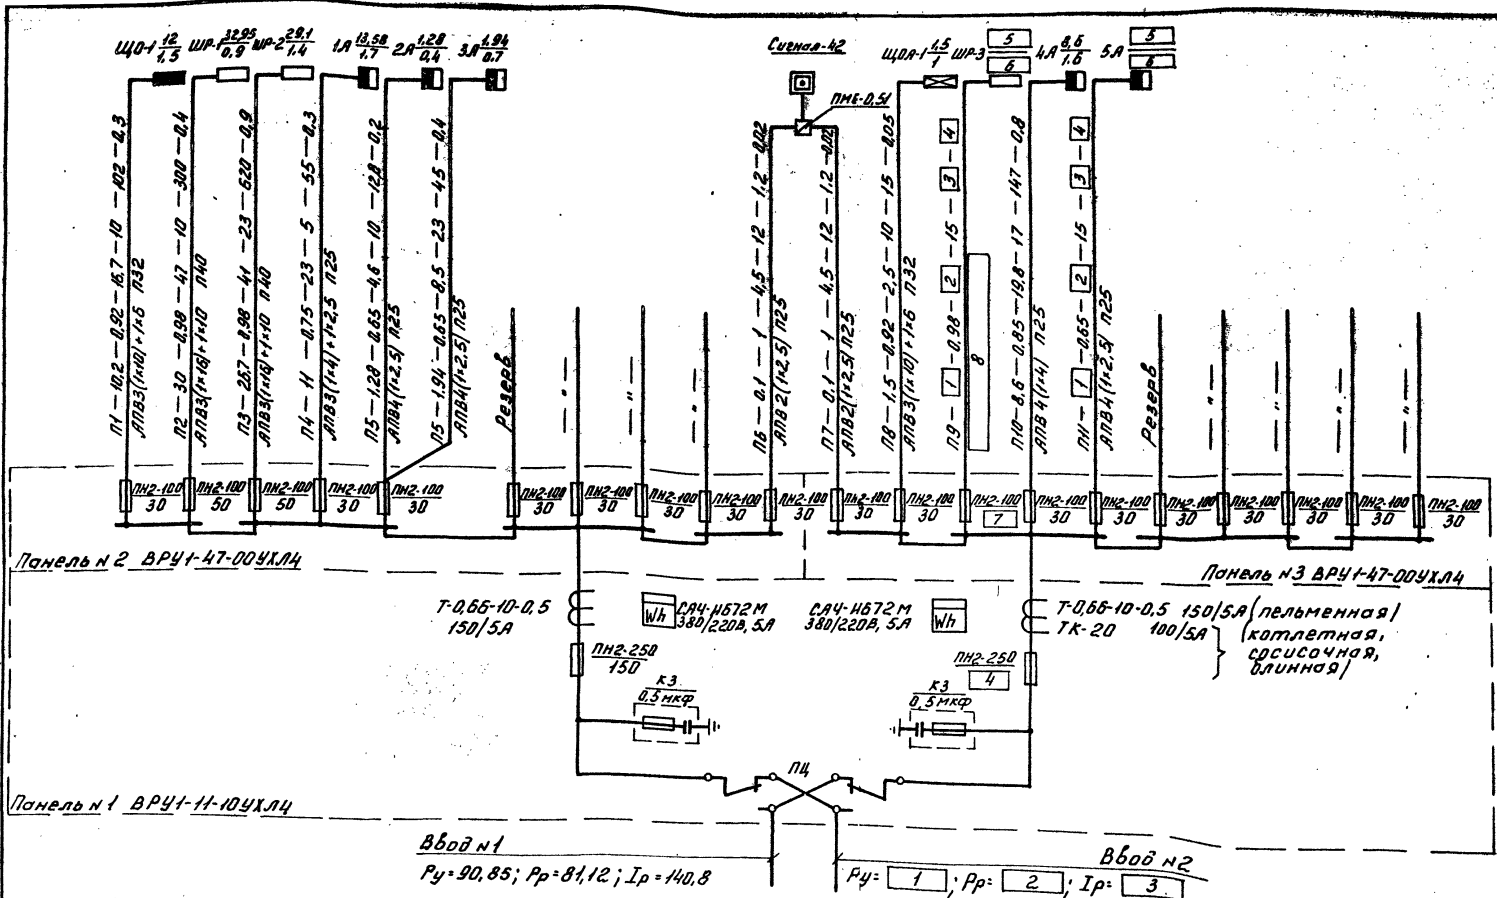 ЩО-1 12/1,5
ШР-1 32,95/0,9
ШР-2 29,1/1,4
1А 13,58/1,7
2А 1,28/0,4
3А 1,94/0,7
Сигнал-42
ЩОА-1 1,5/1
ШР-3 5/6
4А 8,6/1,6
5А 5/6
ПМЕ-0,51
П1 — 10,2 — 0,92 — 16,7 — 10 — 102 — 0,3
АПВ3(1×10)+1×6 П32
П2 — 30 — 0,98 — 47 — 10 — 300 — 0,4
АПВ3(1×16)+1×10 П40
П3 — 26,7 — 0,98 — 41 — 23 — 620 — 0,9
АПВ3(1×16)+1×10 П40
П4 — 11 — 0,75 — 23 — 5 — 55 — 0,3
АПВ3(1×4)+1×2,5 П25
П5 — 1,28 — 0,65 — 4,6 — 10 — 12,8 — 0,2
АПВ4(1×2,5) П25
П5 — 1,94 — 0,65 — 8,5 — 23 — 45 — 0,4
АПВ4(1×2,5) П25
Резерв
— " —
— " —
— " —
П6 — 0,1 — 1 — 4,5 — 12 — 1,2 — 0,02
АПВ2(1×2,5) П25
П7 — 0,1 — 1 — 4,5 — 12 — 1,2 — 0,02
АПВ2(1×2,5) П25
П8 — 1,5 — 0,92 — 2,5 — 10 — 15 — 0,05
АПВ3(1×10)+1×6 П32
П9 — 1 — 0,98 — 2 — 15 — 3 — 4
8
П10 — 8,6 — 0,85 — 19,8 — 17 — 147 — 0,8
АПВ4(1×4) П25
П11 — 1 — 0,65 — 2 — 15 — 3 — 4
АПВ4(1×2,5) П25
Резерв
— " —
— " —
— " —
— " —
ПН2-100/30
ПН2-100/50
ПН2-100/50
ПН2-100/30
ПН2-100/30
ПН2-100/30
ПН2-100/30
ПН2-100/30
ПН2-100/30
ПН2-100/30
ПН2-100/30
ПН2-100/30
ПН2-100/7
ПН2-100/30
ПН2-100/30
ПН2-100/30
ПН2-100/30
ПН2-100/30
ПН2-100/30
ПН2-100/30
Панель №2 ВРУ1-47-00УХЛ4
Панель №3 ВРУ1-47-00УХЛ4
Т-0,66-10-0,5
150/5А
Wh
САЧ-И672М
380/220В, 5А
САЧ-И672М
380/220В, 5А
Wh
Т-0,66-10-0,5 150/5А (пельменная)
ТК-20 100/5А (котлетная,
сосисочная,
блинная)
ПН2-250
150
ПН2-250
4
КЗ
0,5мкф
КЗ
0,5мкф
ПЦ
Панель №1 ВРУ1-11-10УХЛ4
Ввод №1
Ру=90,85; Рр=81,12; Iр=140,8
Ввод №2
Ру= 1 ; Рр= 2 ; Iр= 3